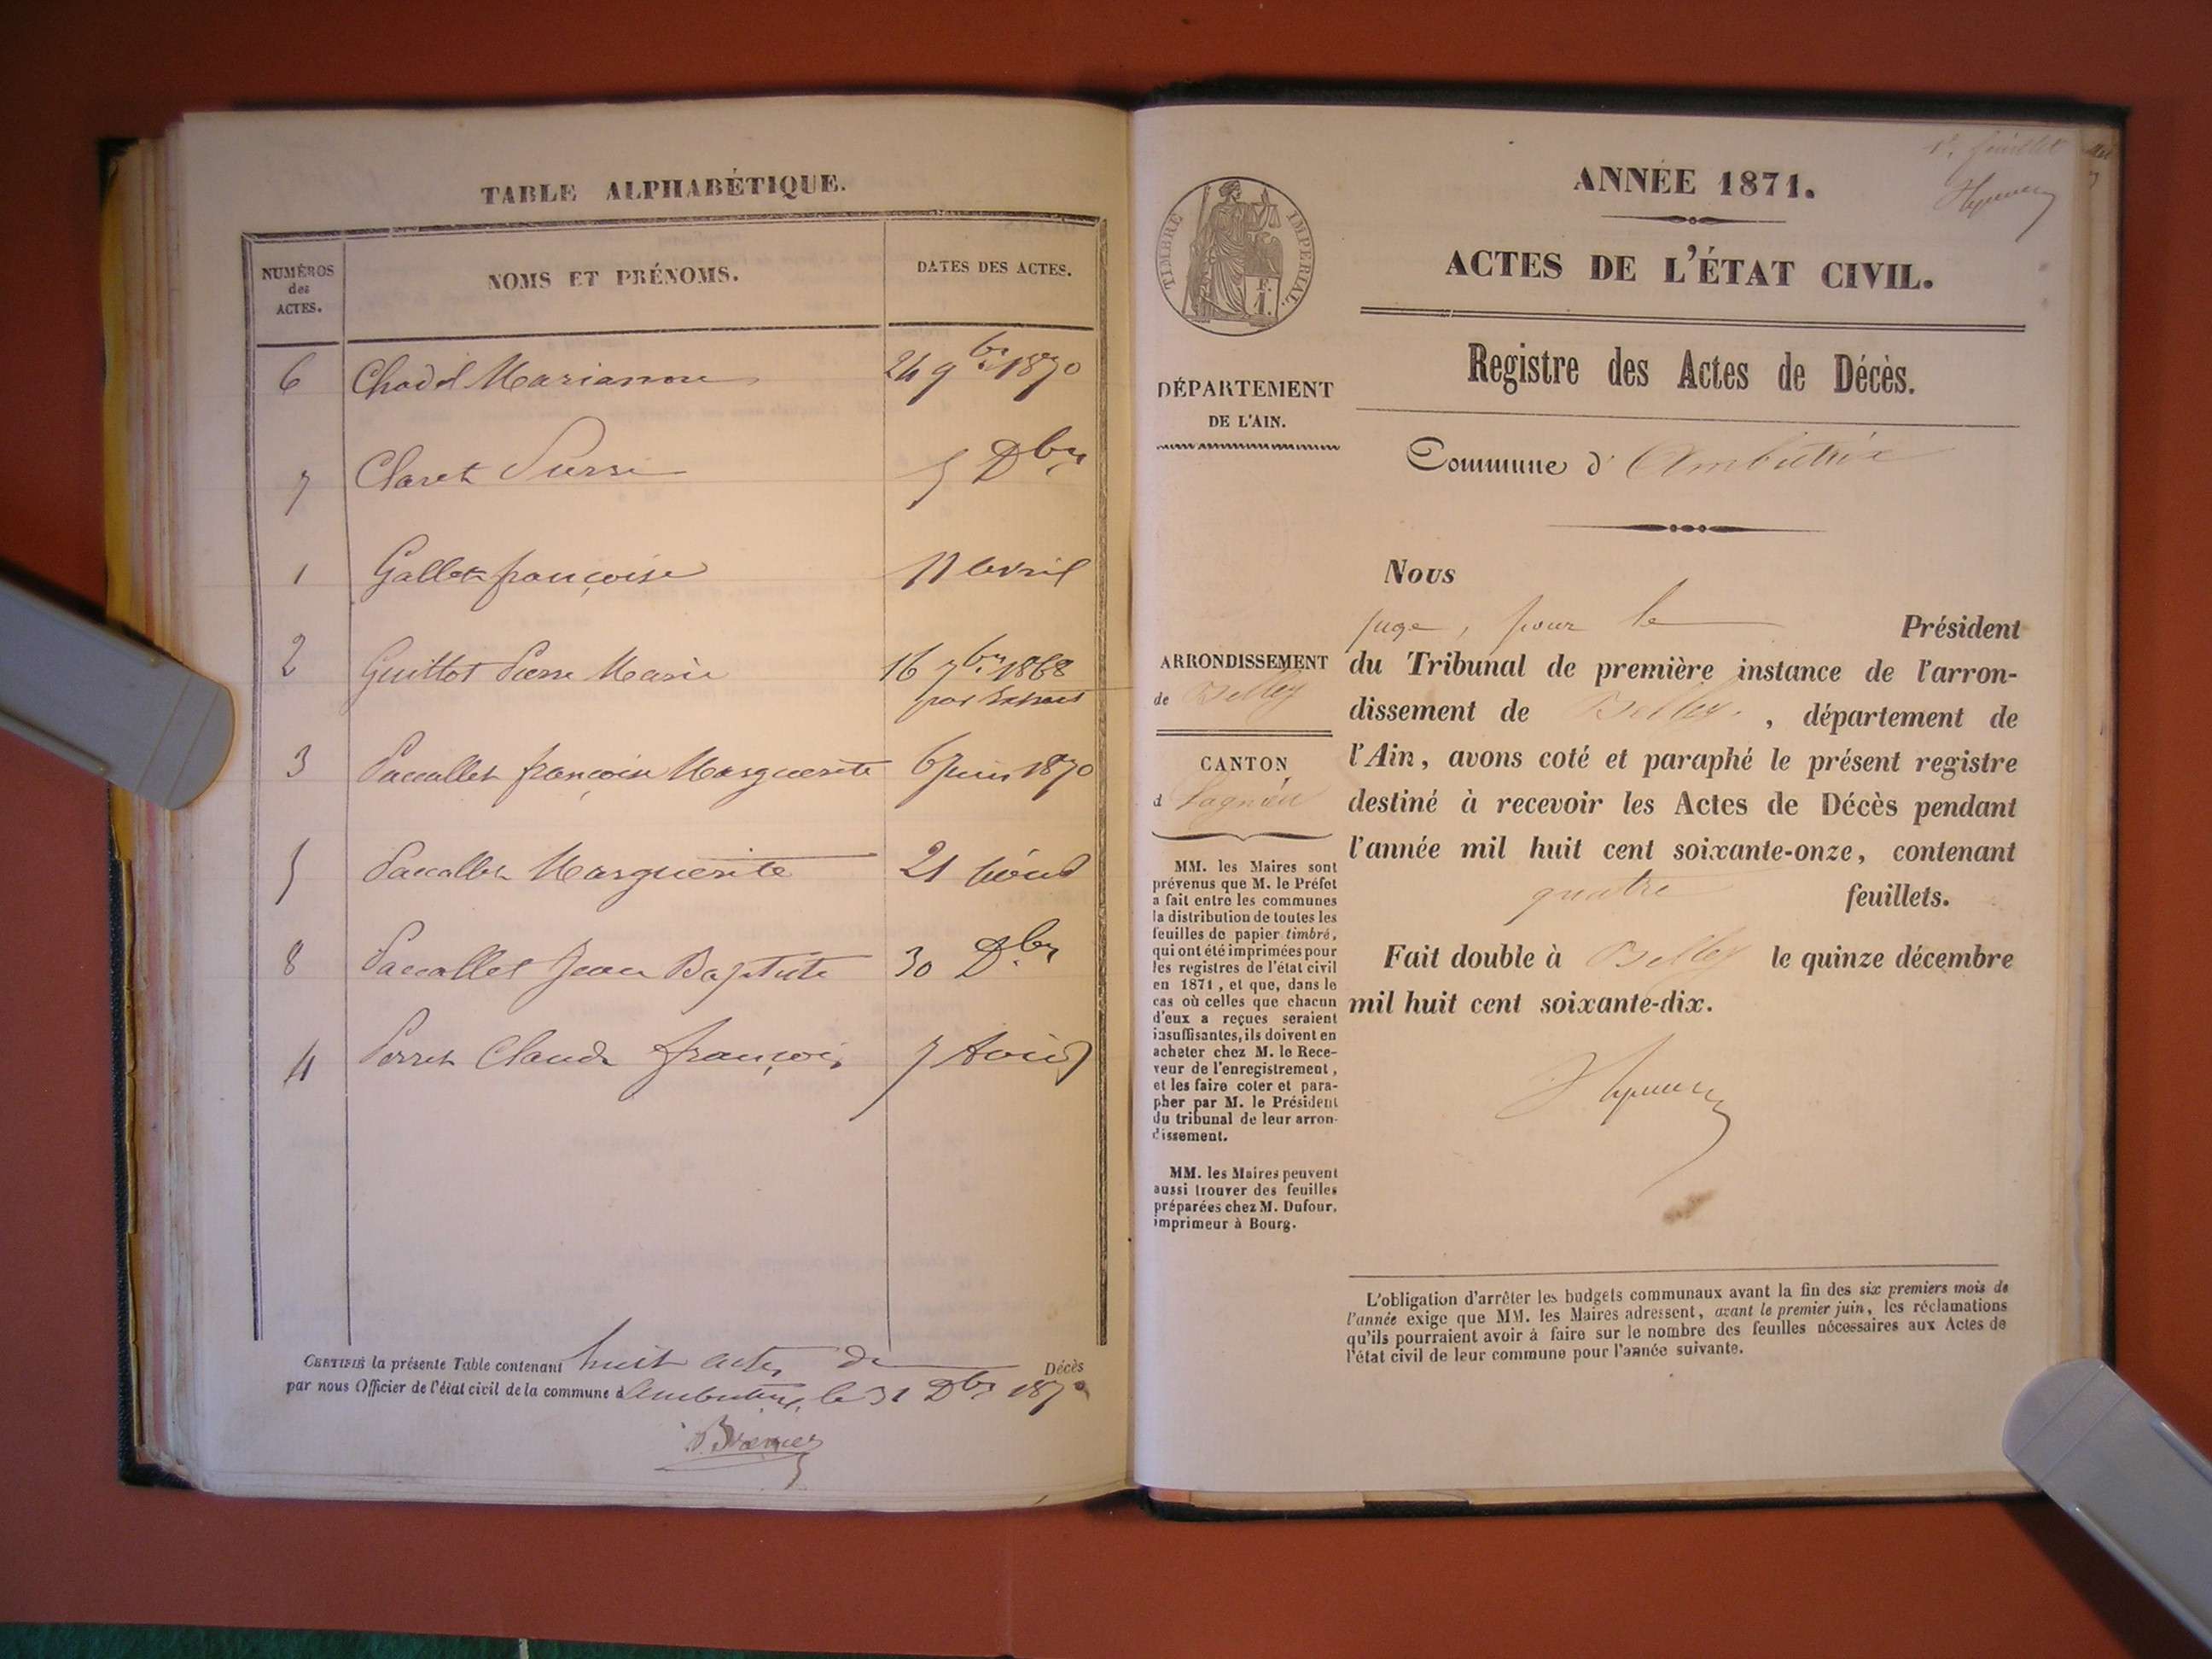 TABLE ALPHABÉTIQUE.
NUMÉROS des ACTES.
NOMS ET PRÉNOMS.
DATES DES ACTES.
6 Chodel Marianne 24 9bre 1870
7 Claret 5 Dbre
1 Gallet françoise 11 Avril
2 Guittot Pierre Marie 16 7bre 1868
par Extrait
3 Paccallet françoise Marguerite 6 Juin 1870
5 Paccallet Marguerite 21 Août
8 Paccallet Jean Baptiste 30 Dbre
4 Perret Claude françois 7 Août
CERTIFIÉ la présente Table contenant huit actes de Décès
par nous Officier de l'état civil de la commune d'Ambutrix, le 31 Dbre 1870
1er feuillet
ANNÉE 1871.
TIMBRE IMPÉRIAL.
1 F.
ACTES DE L'ÉTAT CIVIL.
Registre des Actes de Décès.
DÉPARTEMENT
DE L'AIN.
Commune d'Ambutrix
ARRONDISSEMENT
de Belley
CANTON
d Lagnieu
MM. les Maires sont
prévenus que M. le Préfet
a fait entre les communes
la distribution de toutes les
feuilles de papier timbré,
qui ont été imprimées pour
les registres de l'état civil
en 1871, et que, dans le
cas où celles que chacun
d'eux a reçues seraient
insuffisantes, ils doivent en
acheter chez M. le Rece-
veur de l'enregistrement,
et les faire coter et para-
pher par M. le Président
du tribunal de leur arron-
dissement.
MM. les Maires peuvent
aussi trouver des feuilles
préparées chez M. Dufour,
imprimeur à Bourg.
Nous
juge, pour le Président
du Tribunal de première instance de l'arron-
dissement de Belley, département de
l'Ain, avons coté et paraphé le présent registre
destiné à recevoir les Actes de Décès pendant
l'année mil huit cent soixante-onze, contenant
quatre feuillets.
Fait double à Belley le quinze décembre
mil huit cent soixante-dix.
L'obligation d'arrêter les budgets communaux avant la fin des six premiers mois de
l'année exige que MM. les Maires adressent, avant le premier juin, les réclamations
qu'ils pourraient avoir à faire sur le nombre des feuilles nécessaires aux Actes de
l'état civil de leur commune pour l'année suivante.